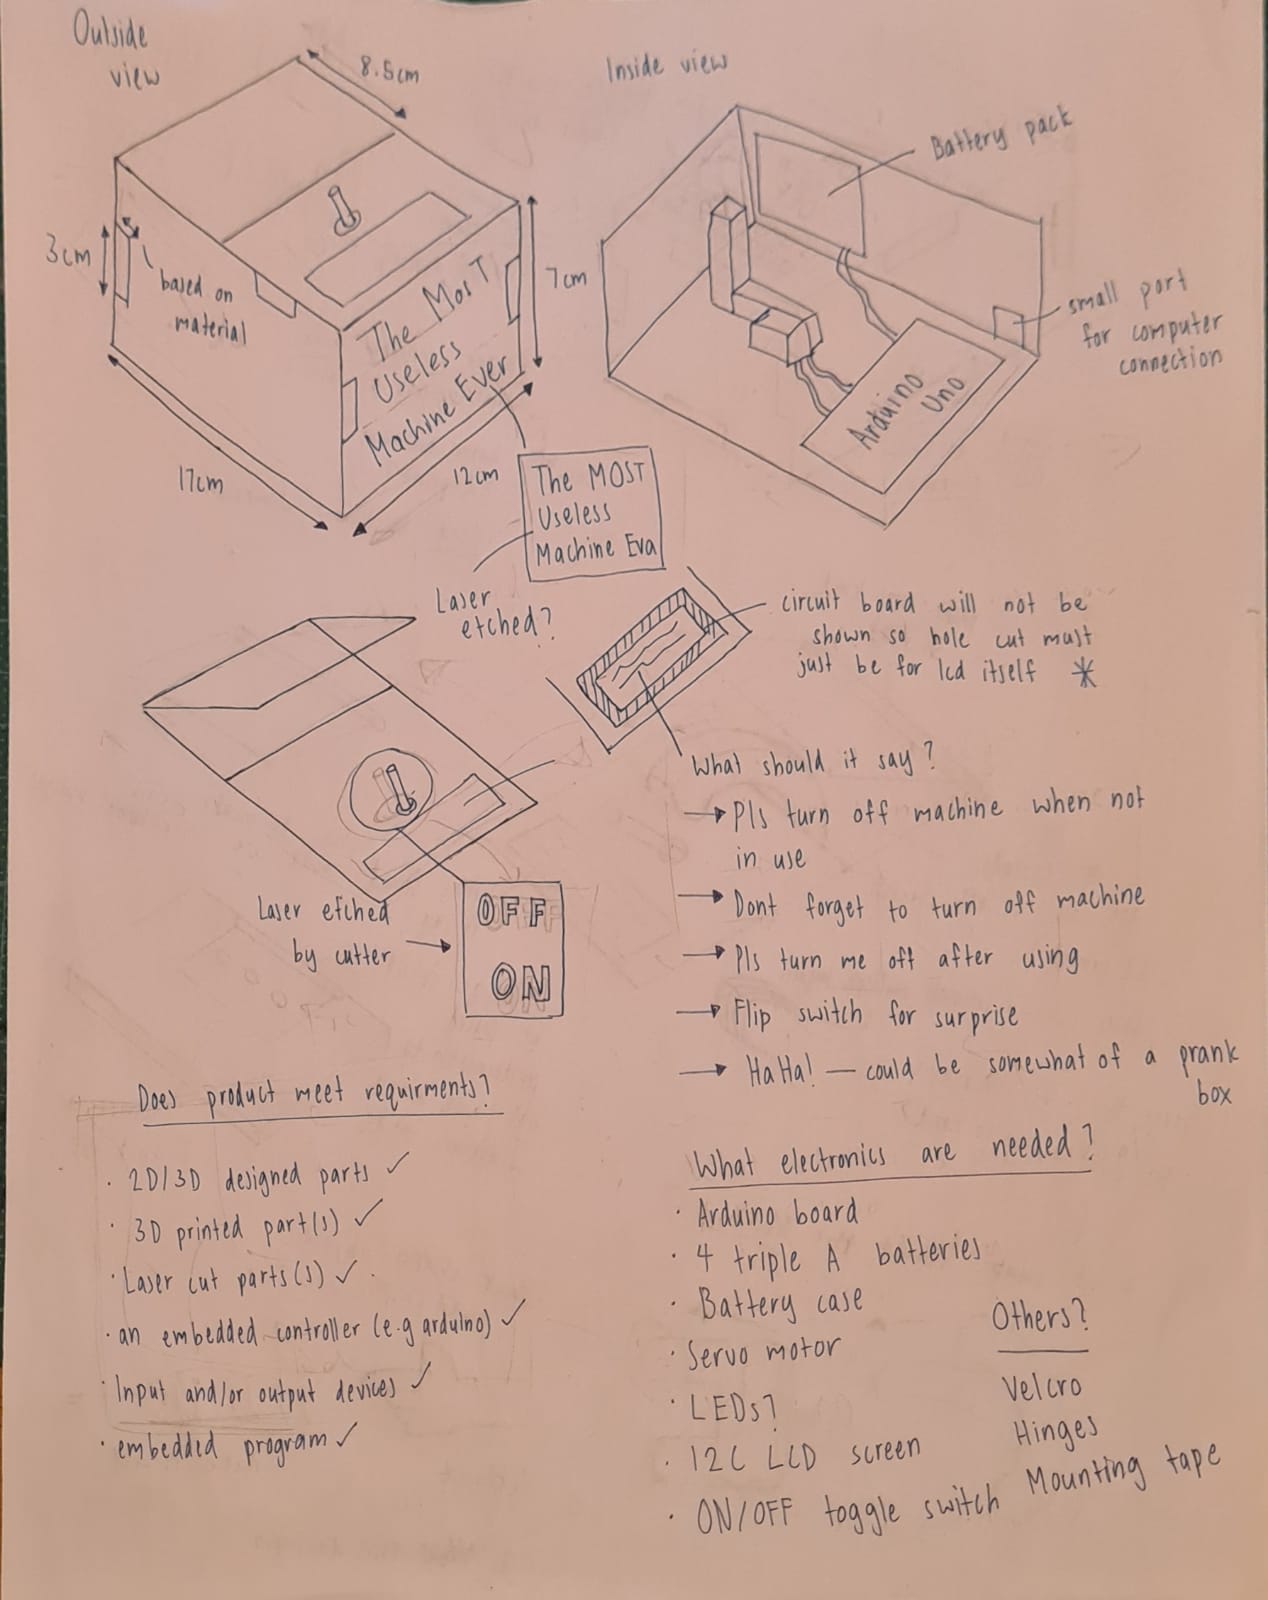 Outside
view
8.5cm
3cm
based on
material
The Most
Useless
Machine Ever
7cm
17cm
12cm
Inside view
Battery pack
small port
for computer
connection
Arduino
Uno
The MOST
Useless
Machine Eva
Laser
etched?
circuit board will not be
shown so hole cut must
just be for lcd itself *
What should it say?
→ Pls turn off machine when not
in use
→ Dont forget to turn off machine
→ Pls turn me off after using
→ Flip switch for surprise
→ HaHa! — could be somewhat of a prank
box
Laser etched
by cutter →
OFF
ON
Does product meet requirments?
· 2D/3D designed parts ✓
· 3D printed part(s) ✓
· Laser cut parts(s) ✓
· an embedded controller (e.g arduino) ✓
· Input and/or output devices ✓
· embedded program ✓
What electronics are needed?
· Arduino board
· 4 triple A batteries
· Battery case
· Servo motor
· LEDs?
· I2C LCD screen
· ON/OFF toggle switch
Others?
Velcro
Hinges
Mounting tape